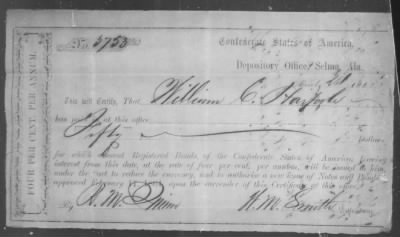 FOUR PER CENT. PER ANNUM.
No. 3753
Confederate States of America,
Depository Office, Selma, Ala.
This will Certify, That William C.
has paid in at this office
Fifty
Dollars,
for which amount Registered Bonds of the Confederate States of America, bearing
interest from this date, at the rate of four per cent. per annum, will be issued to him,
under the "act to reduce the currency, and to authorize a new issue of Notes and Bonds"
approved February 17, 1864, upon the surrender of this Certificate at this office.
By